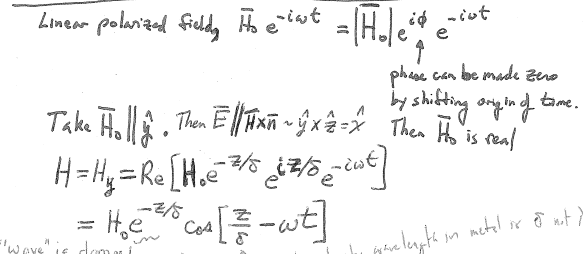 Linear polarized field, H̄₀ e^{-iωt} = |H̄₀| e^{iϕ} e^{-iωt}
phase can be made zero
by shifting origin of time.
Then H̄₀ is real
Take H̄₀ ∥ ŷ. Then Ē ∥ H̄×n̄ ~ ŷ × ẑ = x̂
H = H_y = Re[H₀e^{-z/δ} e^{iz/δ} e^{-iωt}]
= H₀e^{-z/δ} cos[z/δ - ωt]
"wave" is wavelength in metal is δ not?